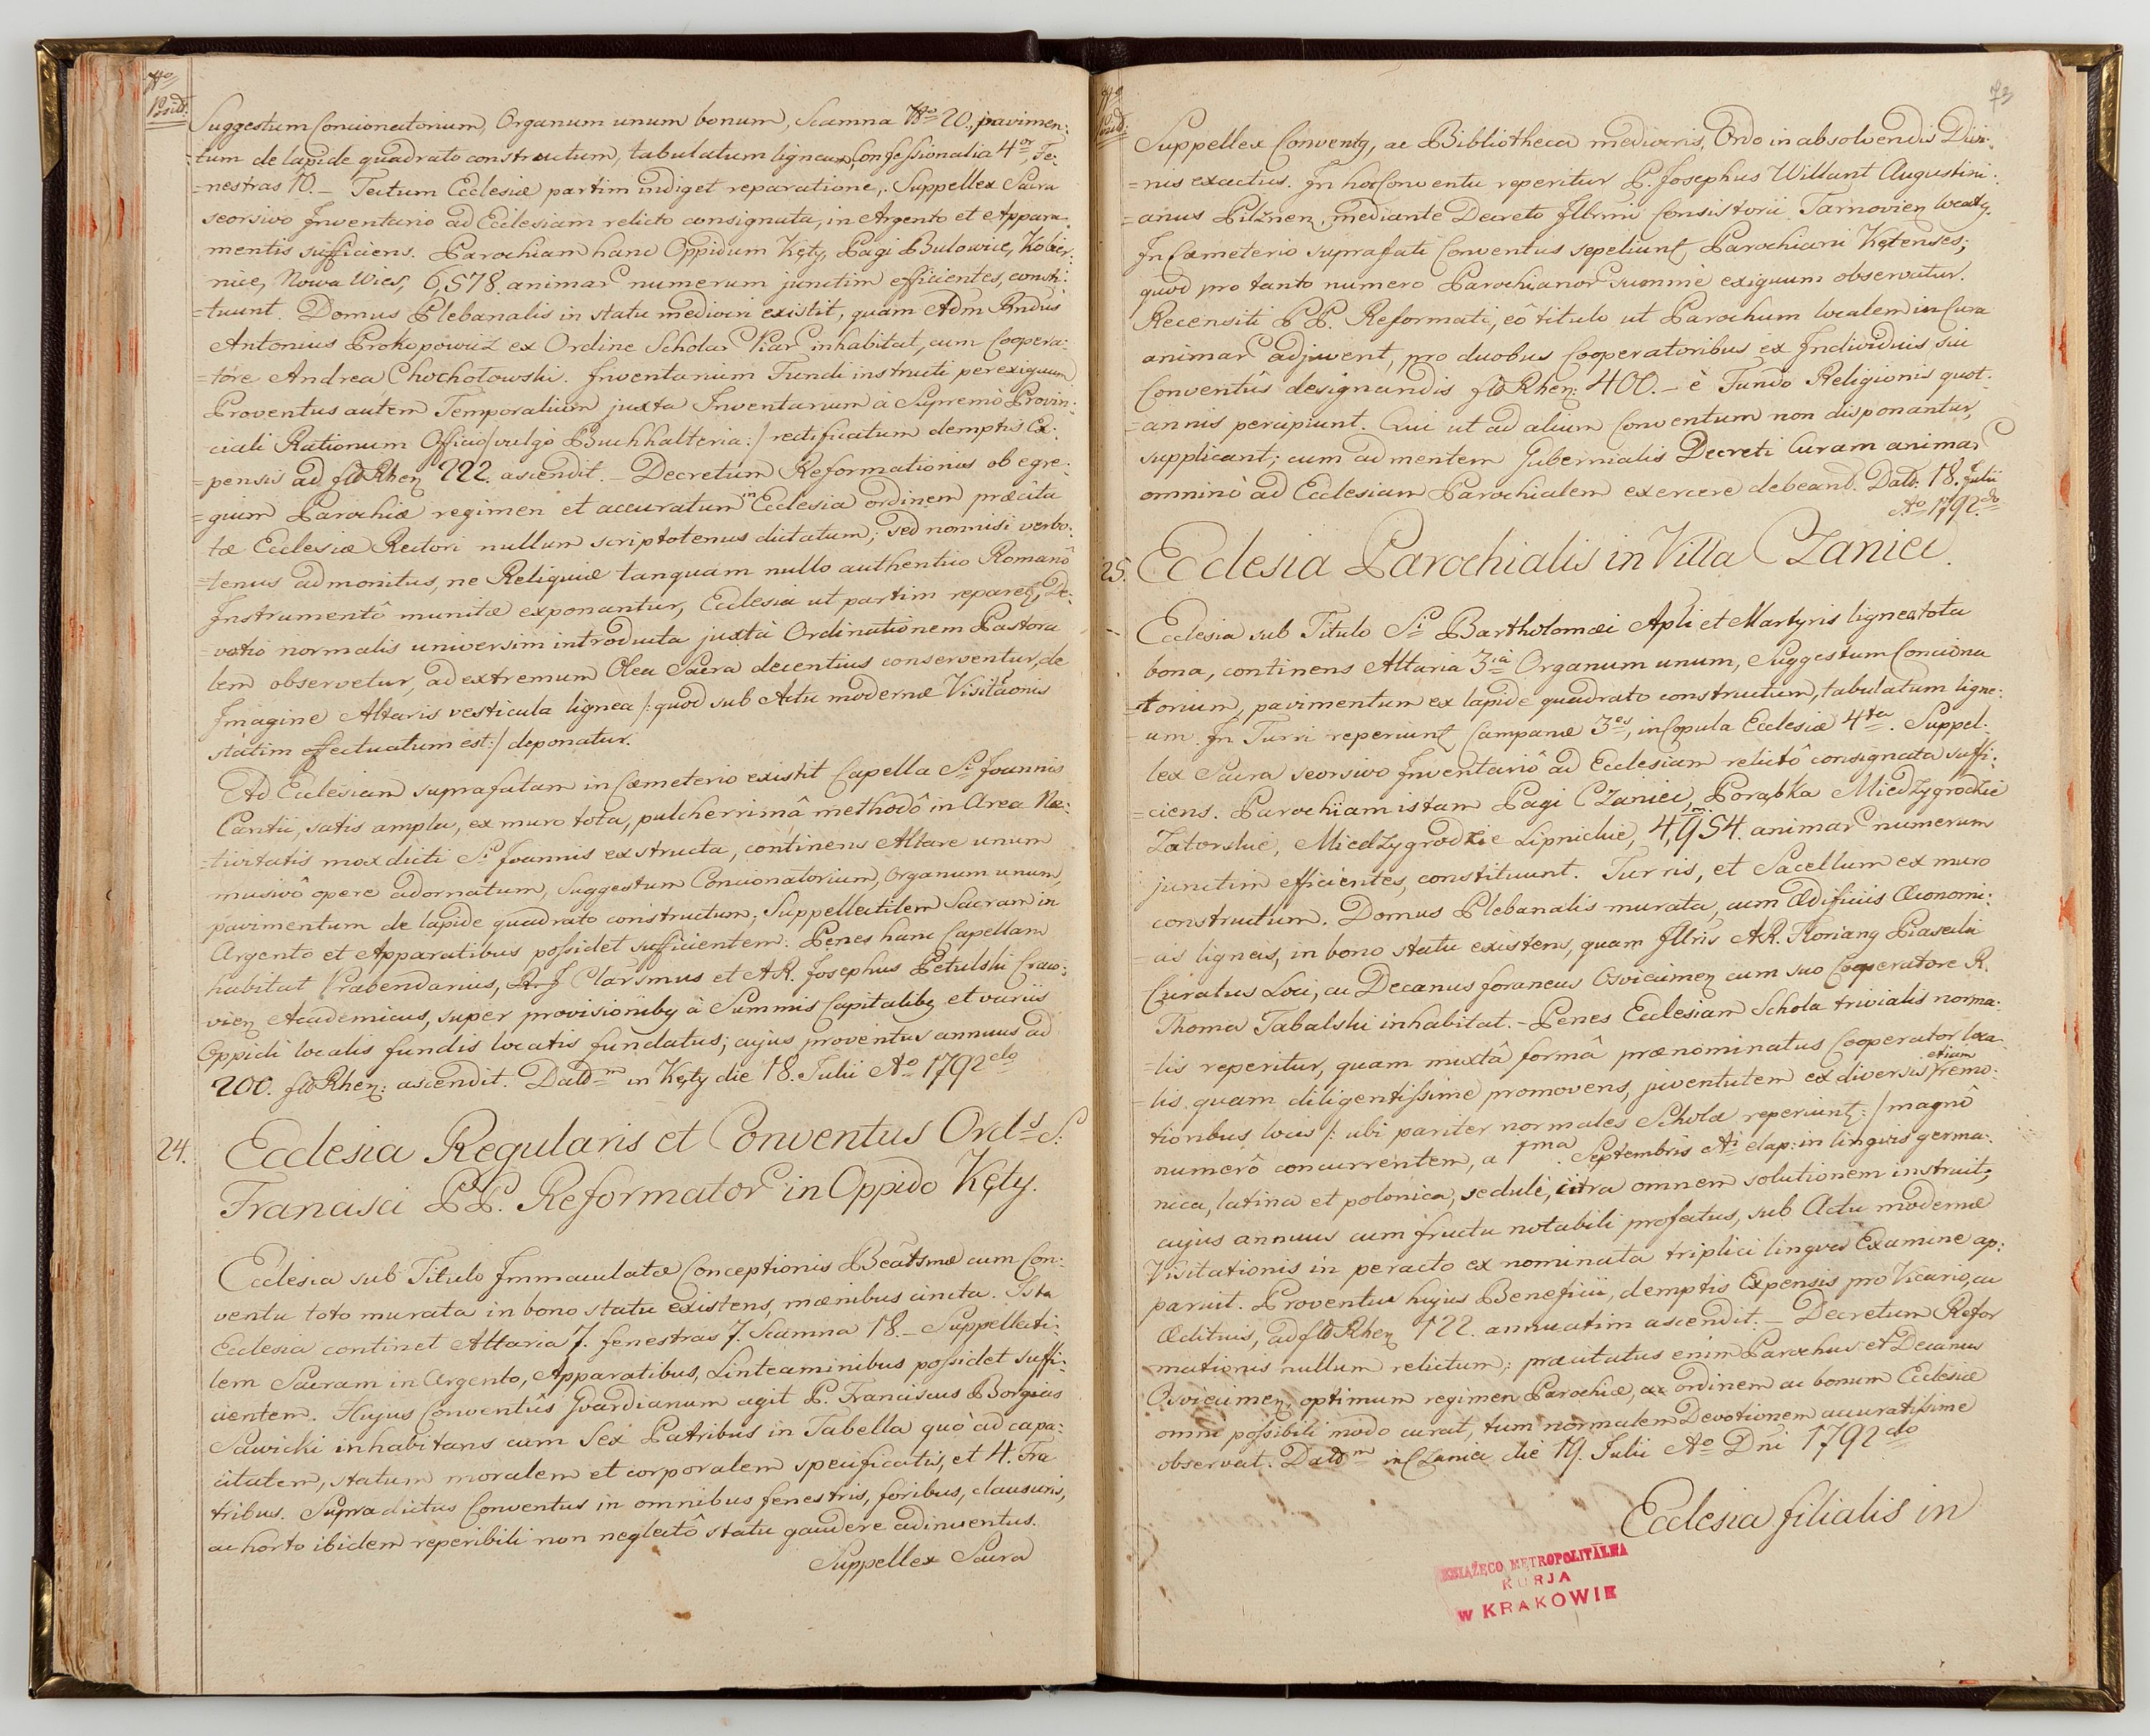 Nro
Posit:
Suggestum Concionatorium, Organum unum bonum, Scamna Nro 20., pavimen:
=tum de lapide quadrato constructum, tabulatum ligneum, Confessionalia 4or, Fe:
=nestras 10. – Tectum Ecclesiæ partim indiget reparatione, Suppellex Sacra
seorsivo Inventario ad Ecclesiam relicto consignata, in Argento et Appara
mentis sufficiens. Parochiam hanc Oppidum Kęty, Pagi Bulowice, Kobier:
nice, Nowa Wies, 6,578. animar numerum junctim efficientes, consti:
=tuunt. Domus Plebanalis in statu mediocri existit, quam Adm Rndus
Antonius Prokopowicz ex Ordine Scholar Piar inhabitat, cum Coopera:
=tore Andrea Chochołowski. Inventarium Fundi instructi perexiguum
Proventus autem Temporalium juxta Inventarium à Supremô Provin:
ciali Rationum Officio /vulgo Buchhalteria:/ rectificatum demptis Ex:
=pensis ad flo Rhen 222. ascendit. – Decretum Reformationis ob egre:
=gium Parochiæ regimen et accuratum in Ecclesia ordinem præcita
tæ Ecclesiæ Rectori nullum scriptotenus dictatum; sed nonnisi verbo:
=tenus admonitus, ne Reliquiæ tanquam nullo authentico Romanô
Instrumentô munitæ exponantur, Ecclesia ut partim repare, De:
=votio normalis universim introducta juxtà Ordinationem Pastora
lem observetur, ad extremum Olea Sacra decentius conserventur, de
Imagine Altaris vesticula lignea /:quod sub Actu modernæ Visitaonis
statim effectuatum est:/ deponatur.
Ad Ecclesiam suprafatam in Cæmeterio existit Capella Si Joannis
Cantii, satis ampla, ex muro tota, pulcherrimâ methodô in Area Na:
=tivitatis mox dicti Si Joannis exstructa, continens Altare unum
musivô opere adornatum, Suggestum Concionatorium, Organum unum,
pavimentum de lapide quadrato constructum; Suppellectilem Sacram in
Argento et Apparatibus possidet sufficientem. Penes hanc Capellam
habitat Præbendarius, Clarsmus et AR. Josephus Petulski Craco:
vien Academicus, super provisionibq à Summis Capitalibq et variis
Oppidi localis fundis locatis fundatus; cujus proventus annuus ad
200. flo Rhen: ascendit. Datdm in Kęty die 18. Julii Ao 1792do
24. Ecclesia Regularis et Conventus Ordis S:
Francisci PP. Reformator in Oppido Kęty.
Ecclesia sub Titulo Immaculatæ Conceptionis Beatsmæ cum Con:
ventu toto murata in bono statu existens, mœnibus cincta. Ista
Ecclesia continet Altaria 7. fenestras 7. Scamna 18. – Suppellecti:
lem Sacram in Argento, Apparatibus, Linteaminibus possidet suffi:
cientem. Hujus Conventûs Gvardianum agit P. Franciscus Borgias
Sawicki inhabitans cum Sex Patribus in Tabella quò ad capa:
citatem, statum moralem et corporalem specificatis, et 4. Fra
tribus. Supradictus Conventus in omnibus fenestris, foribus, clausuris,
ac horto ibidem reperibili non neglectô statu gaudere adinventus.
Suppellex Sacra
73
Nro
Posit:
Suppellex Conventq, ac Bibliotheca mediocris, Ordo in absolvendis Divi:
=nis exactus. In hoc Conventu reperitur P. Josephus Willant Augustini:
=anus Pilznen, mediante Decreto Illrmi Consistorii Tarnovien locatq.
In Cæmeterio suprafati Conventus sepeliunt Parochiani Kętenses;
quod pro tanto numero Parochianor summè exiguum observatur.
Recensiti PP. Reformati, eô titulo ut Parochum localem in Cura
animar adjuvent, pro duobus Cooperatoribus ex Individuis sui
Conventûs designandis flo Rhen: 400. – è Fundo Religionis quot:
=annis percipiunt. Qui ut ad alium Conventum non disponantur,
supplicant; cum ad mentem Gubernialis Decreti Curam animar
omninò ad Ecclesiam Parochialem exercere debeand. Datd. 18. Julii
Ao 1792do
25. Ecclesia Parochialis in Villa Czaniec.
Ecclesia sub Titulo Si Bartholomæi Apli et Martyris lignea tota
bona, continens Altaria 3ia Organum unum, Suggestum Conciona
=torium, pavimentum ex lapide quadrato constructum, tabulatum ligne:
=um. In Turri reperiunt Campanæ 3es, in Copula Ecclesiæ 4ta. Suppel:
lex Sacra seorsivo Inventariô ad Ecclesiam relictô consignata suffi:
=ciens. Parochiam istam Pagi Czaniec, Porąbka Miedzygrodzie
Zatorskie, Miedzygrodzie Lipnickie, 4,954. animar numerum
junctim efficientes, constituunt. Turris, et Sacellum ex muro
constructum. Domus Plebanalis murata, cum Ædificiis Œconomi:
=cis ligneis, in bono statu existens, quam Illris AR. Florianq Piasecki
Curatus Loci, ac Decanus foraneus Osviecimen cum suo Cooperatore R.
Thoma Tabalski inhabitat. – Penes Ecclesiam Schola trivialis norma:
=lis reperitur, quam mixtâ formâ prænominatus Cooperator loca
=lis quam diligentissime promovens, juventutem ex diversis etiam remo:
tionibus locis /: ubi pariter normales Scholæ reperiunt:/ magnô
numerô concurrentem, a 1ma Septembris Ai elap: in lingvis germa:
nica, latina et polonica, sedulè, citra omnem solutionem instruit,
cujus annuus cum fructu notabili profectus, sub Actu modernæ
Visitationis in peracto ex nominata triplici lingva Examine ap:
paruit. Proventus hujus Beneficii, demptis Expensis pro Vicario, ac
Ædituis, ad flo Rhen 122. annuatim ascendit. – Decretum Refor
mationis nullum relictum; præcitatus enim Parochus et Decanus
Osviecimen, optimum regimen Parochiæ, ac ordinem ac bonum Ecclesiæ
omni possibili modo curat, tum normalem Devotionem accuratissime
observat. Datdm in Czaniec die 19. Julii Ao Dni 1792do
Ecclesia filialis in
KSIĄŻĘCO METROPOLITALNA
KURJA
w KRAKOWIE